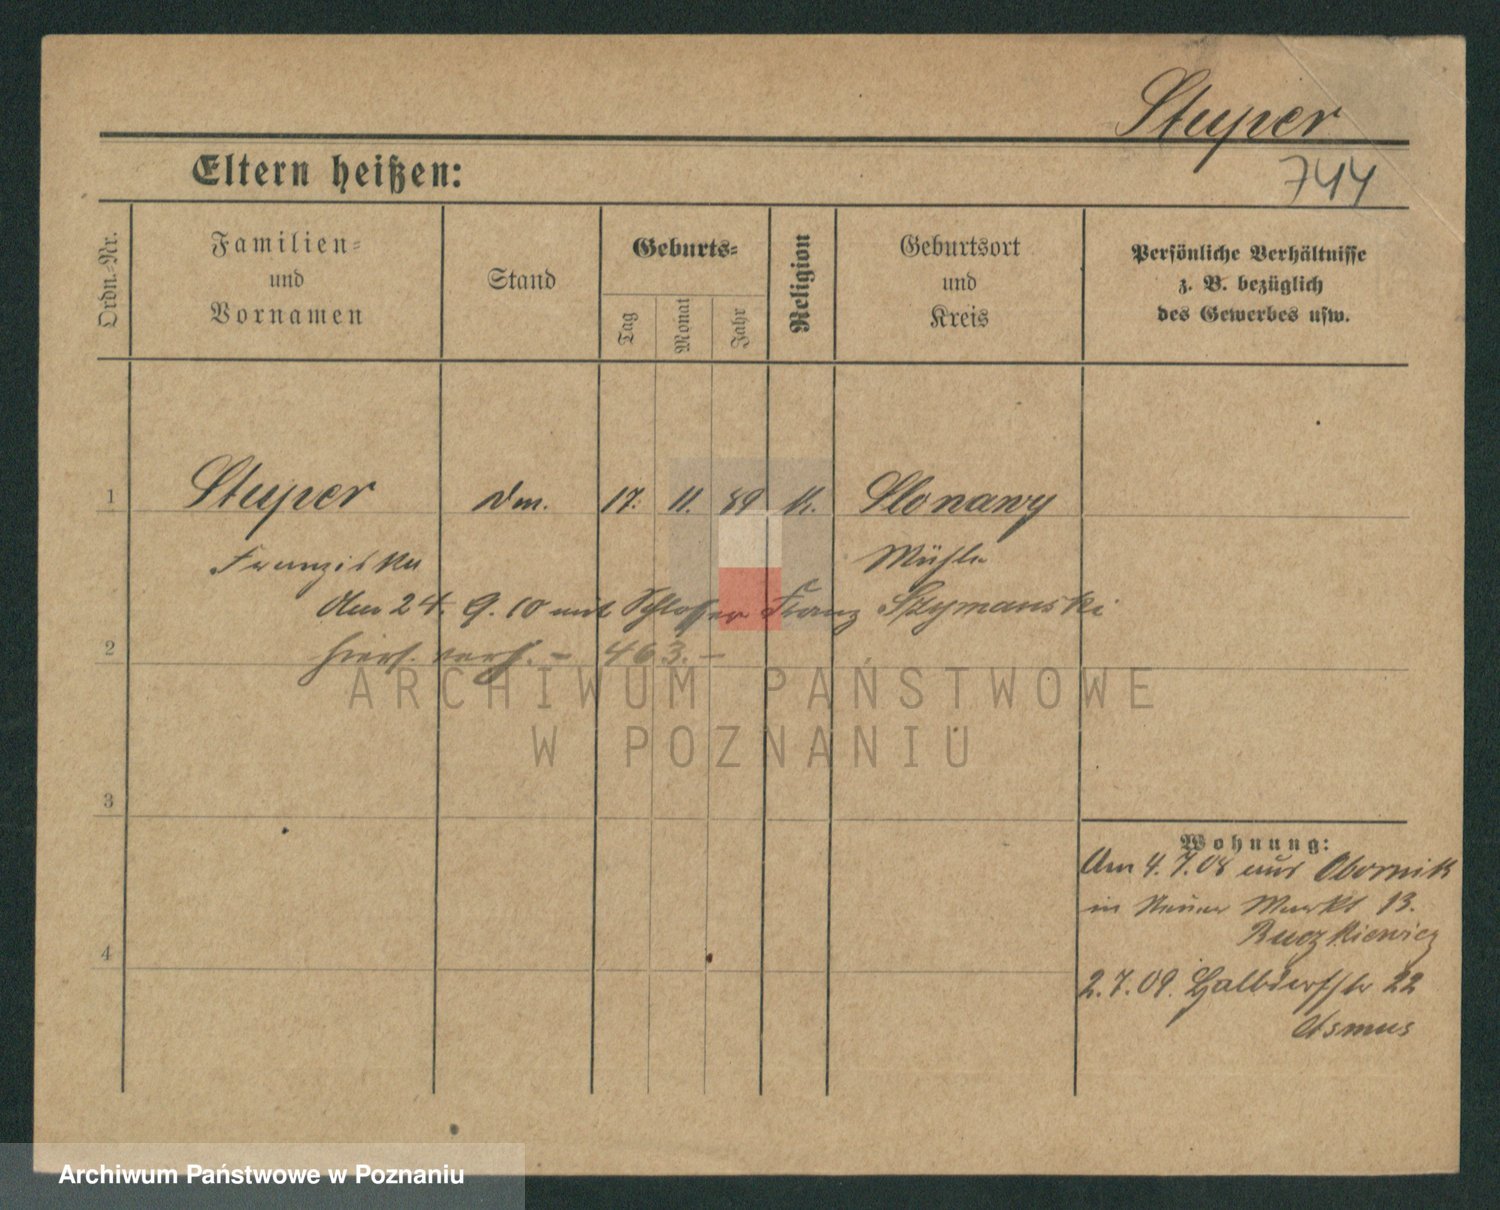 Stuper
744
Eltern heißen:
Ordn.-Nr.
Familien-
und
Vornamen
Stand
Geburts-
Tag
Monat
Jahr
Religion
Geburtsort
und
Kreis
Persönliche Verhältnisse
z. B. bezüglich
des Gewerbes usw.
1 Stuper Dm. 17. 11. 89 k. Slonawy
Franziska Mühle
Am 24. 9. 10 mit Schlosser Franz Szymanski
2 hiers. verh. – 463. –
ARCHIWUM PAŃSTWOWE
W POZNANIU
3
Wohnung:
Am 4.7.08 aus Obornik
in Neuer Markt 13.
Ruczkiewicz
4
2.7.09. Halbdorfstr 22
Asmus
Archiwum Państwowe w Poznaniu